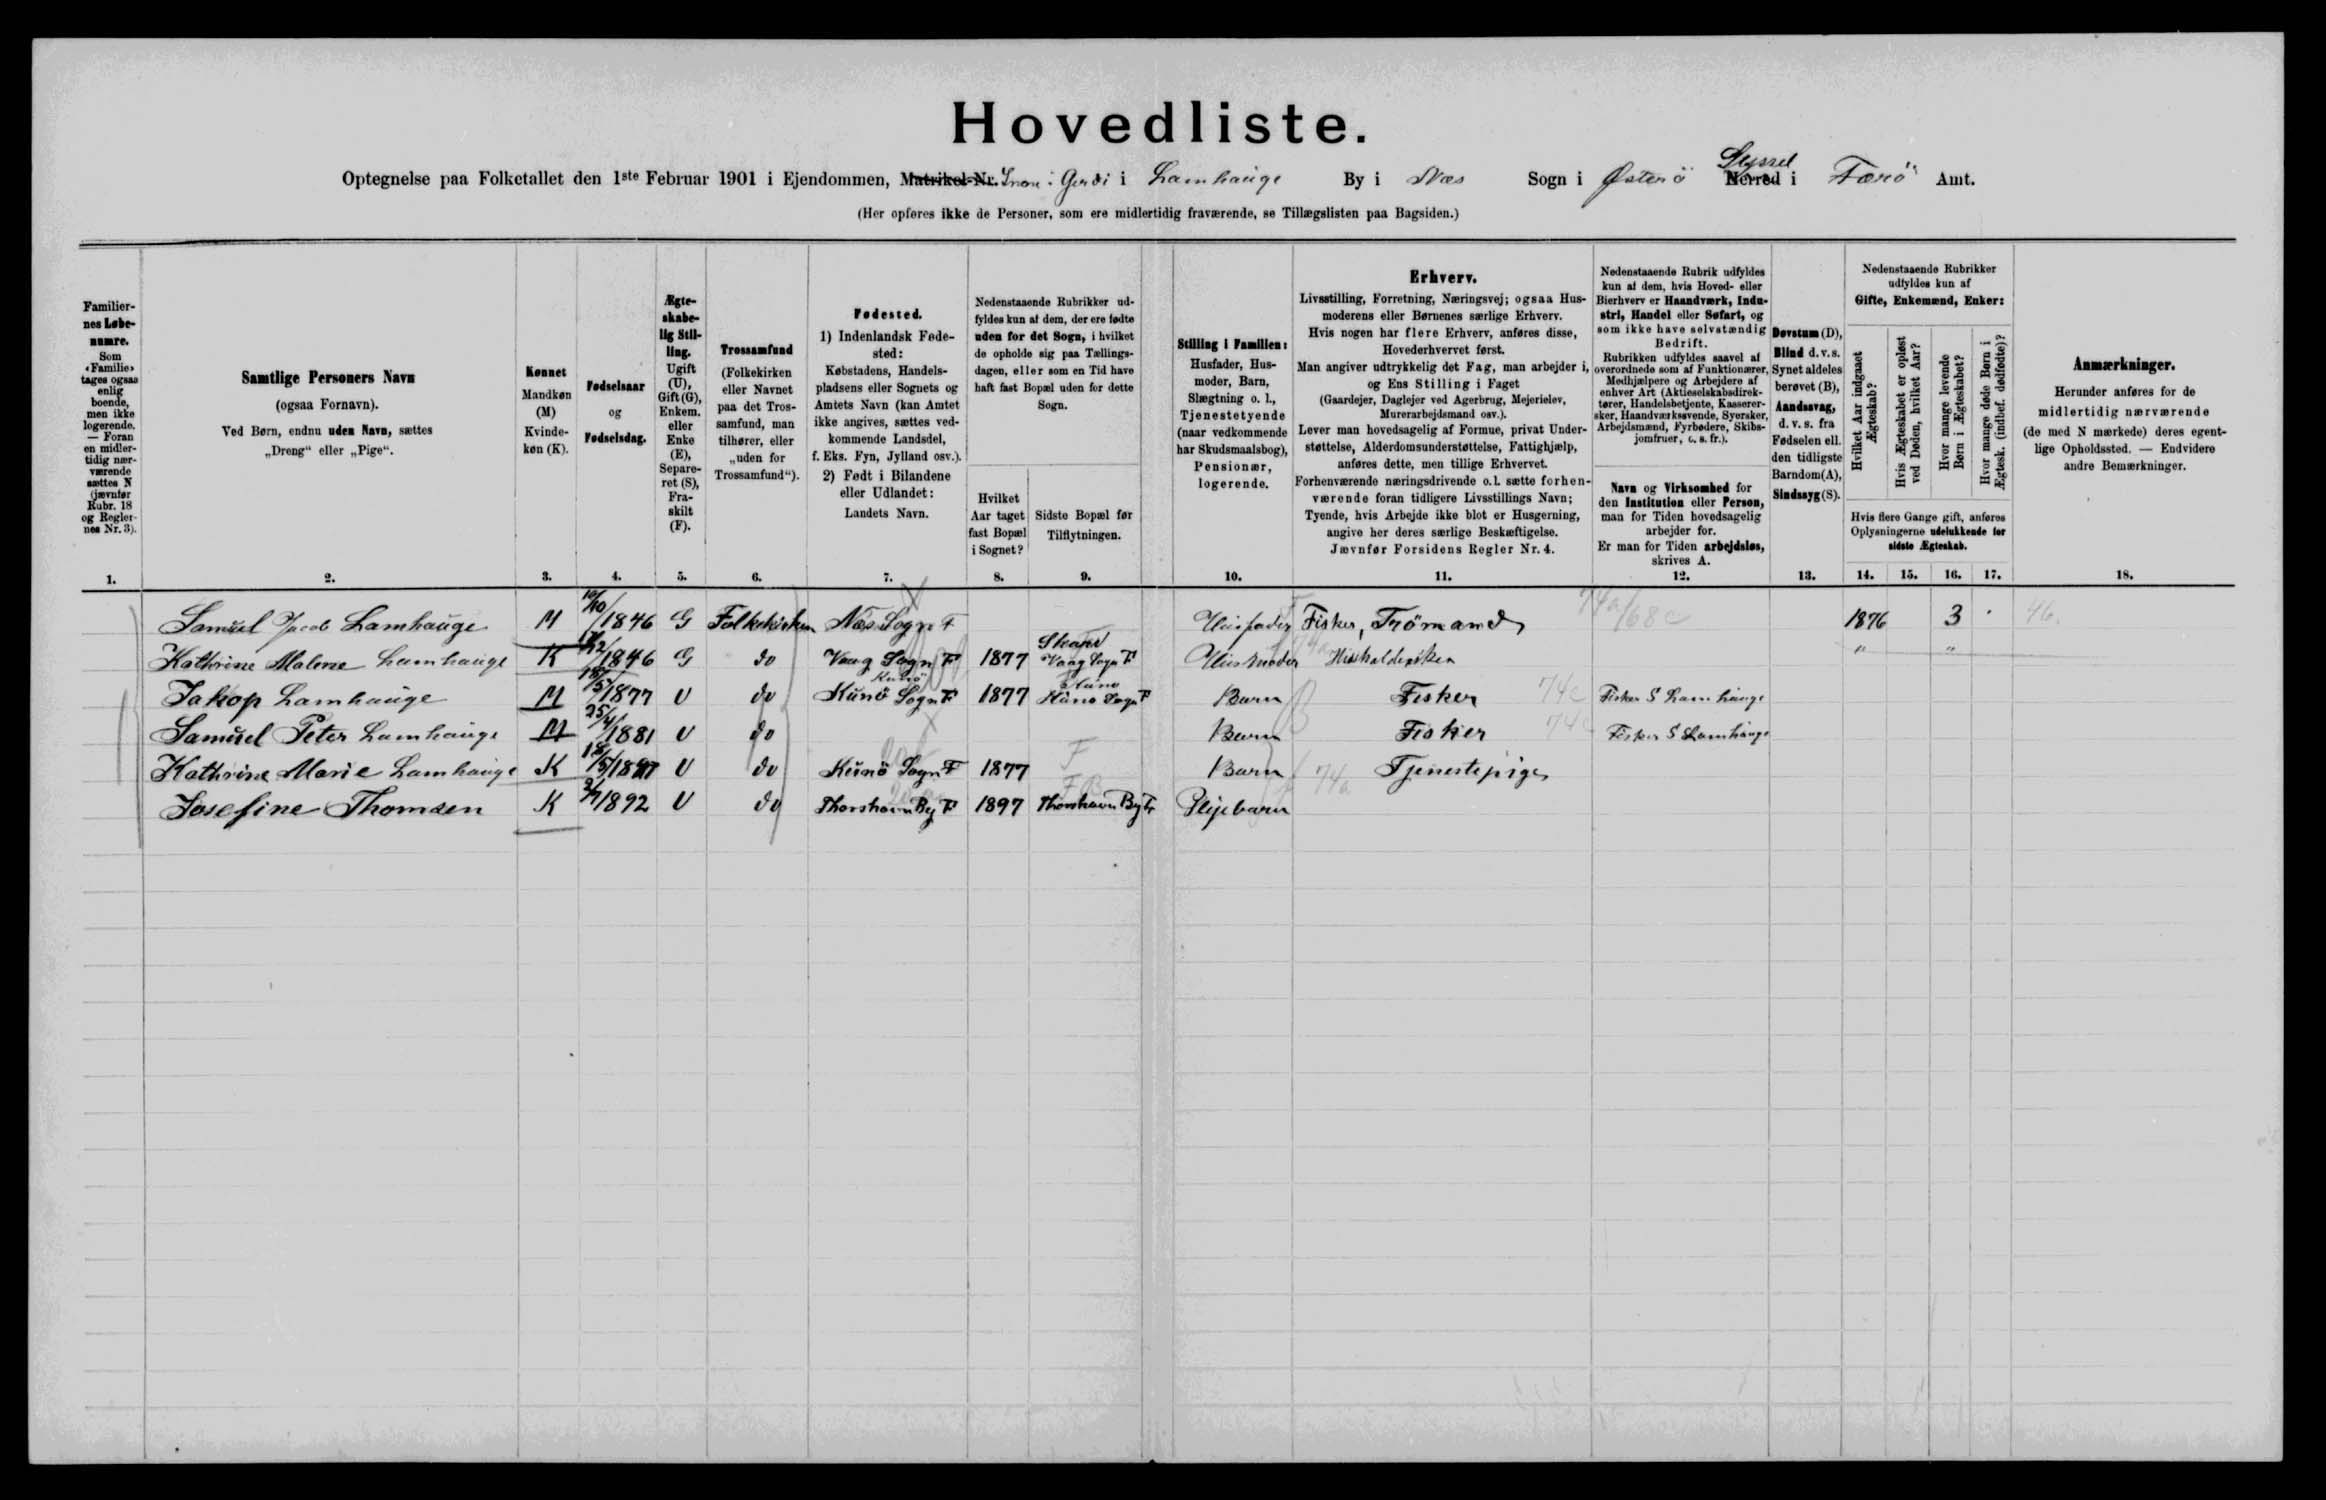 Hovedliste.
Optegnelse paa Folketallet den 1ste Februar 1901 i Ejendommen, Matrikel-Nr. i Gerdi i Lamhauge By i Næs Sogn i Østerö Syssel Herred i Færö Amt.
(Her opføres ikke de Personer, som ere midlertidig fraværende, se Tillægslisten paa Bagsiden.)
Familiernes Løbenumre. Som «Familie» tages ogsaa enlig boende, men ikke logerende. — Foran en midlertidig nærværende sættes N (jævnfør Rubr. 18 og Reglernes Nr. 3).
Samtlige Personers Navn
(ogsaa Fornavn).
Ved Børn, endnu uden Navn, sættes
„Dreng“ eller „Pige“.
Kønnet
Mandkøn (M)
Kvindekøn (K).
Fødselsaar
og
Fødselsdag.
Ægteskabelig Stilling. Ugift (U), Gift (G), Enkem. eller Enke (E), Separeret (S), Fraskilt (F).
Trossamfund
(Folkekirken eller Navnet paa det Trossamfund, man tilhører, eller „uden for Trossamfund“).
Fødested.
1) Indenlandsk Fødested:
Købstadens, Handelspladsens eller Sognets og Amtets Navn (kan Amtet ikke angives, sættes vedkommende Landsdel, f. Eks. Fyn, Jylland osv.).
2) Født i Bilandene eller Udlandet:
Landets Navn.
Nedenstaaende Rubrikker udfyldes kun af dem, der ere fødte uden for det Sogn, i hvilket de opholde sig paa Tællingsdagen, eller som en Tid have haft fast Bopæl uden for dette Sogn.
Hvilket Aar taget fast Bopæl i Sognet?
Sidste Bopæl før Tilflytningen.
Stilling i Familien:
Husfader, Husmoder, Barn, Slægtning o. l., Tjenestetyende (naar vedkommende har Skudsmaalsbog), Pensionær, logerende.
Erhverv.
Livsstilling, Forretning, Næringsvej; ogsaa Husmoderens eller Børnenes særlige Erhverv.
Hvis nogen har flere Erhverv, anføres disse, Hovederhvervet først.
Man angiver udtrykkelig det Fag, man arbejder i, og Ens Stilling i Faget
(Gaardejer, Daglejer ved Agerbrug, Mejerielev, Murerarbejdsmand osv.).
Lever man hovedsagelig af Formue, privat Understøttelse, Alderdomsunderstøttelse, Fattighjælp, anføres dette, men tillige Erhvervet.
Forhenværende næringsdrivende o. l. sætte forhenværende foran tidligere Livsstillings Navn;
Tyende, hvis Arbejde ikke blot er Husgerning, angive her deres særlige Beskæftigelse.
Jævnfør Forsidens Regler Nr. 4.
Nedenstaaende Rubrik udfyldes kun af dem, hvis Hoved- eller Bierhverv er Haandværk, Industri, Handel eller Søfart, og som ikke have selvstændig Bedrift.
Rubrikken udfyldes saavel af overordnede som af Funktionærer, Medhjælpere og Arbejdere af enhver Art (Aktieselskabsdirektører, Handelsbetjente, Kasserersker, Haandværkssvende, Syersker, Arbejdsmænd, Fyrbødere, Skibsjomfruer, o. s. fr.).
Navn og Virksomhed for den Institution eller Person, man for Tiden hovedsagelig arbejder for.
Er man for Tiden arbejdsløs, skrives A.
Døvstum (D), Blind d. v. s. Synet aldeles berøvet (B), Aandssvag, d. v. s. fra Fødselen ell. den tidligste Barndom (A), Sindssyg (S).
Nedenstaaende Rubrikker udfyldes kun af
Gifte, Enkemænd, Enker:
Hvilket Aar indgaaet Ægteskab?
Hvis Ægteskabet er opløst ved Døden, hvilket Aar?
Hvor mange levende Børn i Ægteskabet?
Hvor mange døde Børn i Ægtesk. (indbef. dødfødte)?
Hvis flere Gange gift, anføres Oplysningerne udelukkende for sidste Ægteskab.
Anmærkninger.
Herunder anføres for de midlertidig nærværende (de med N mærkede) deres egentlige Opholdssted. — Endvidere andre Bemærkninger.
1. 2. 3. 4. 5. 6. 7. 8. 9. 10. 11. 12. 13. 14. 15. 16. 17. 18.
Samuel Jacob Lamhauge M 10/10/1846 G Folkekirken Næs Sogn F Husfader Fisker, Trömand 74a/68c 1876 3 46.
Kathrine Malene Lamhauge K 1846 G do Vaag Sogn F 1877 Vaag Sogn F Husmoder " "
Jakop Lamhauge M 18/5/1877 U do Kunö Kunö Sogn F 1877 Kunö Sogn F Barn Fisker 74c Fisker S Lamhauge
Samuel Peter Lamhauge M 25/4/1881 U do Barn Fisker 74c Fisker S Lamhauge
Kathrine Marie Lamhauge K 18/5/1877 U do Kunö Sogn F 1877 F Barn 74a Tjenestepige
Josefine Thomsen K 2/7/1892 U do Thorshavn By F 1897 Thorshavn By F Plejebarn